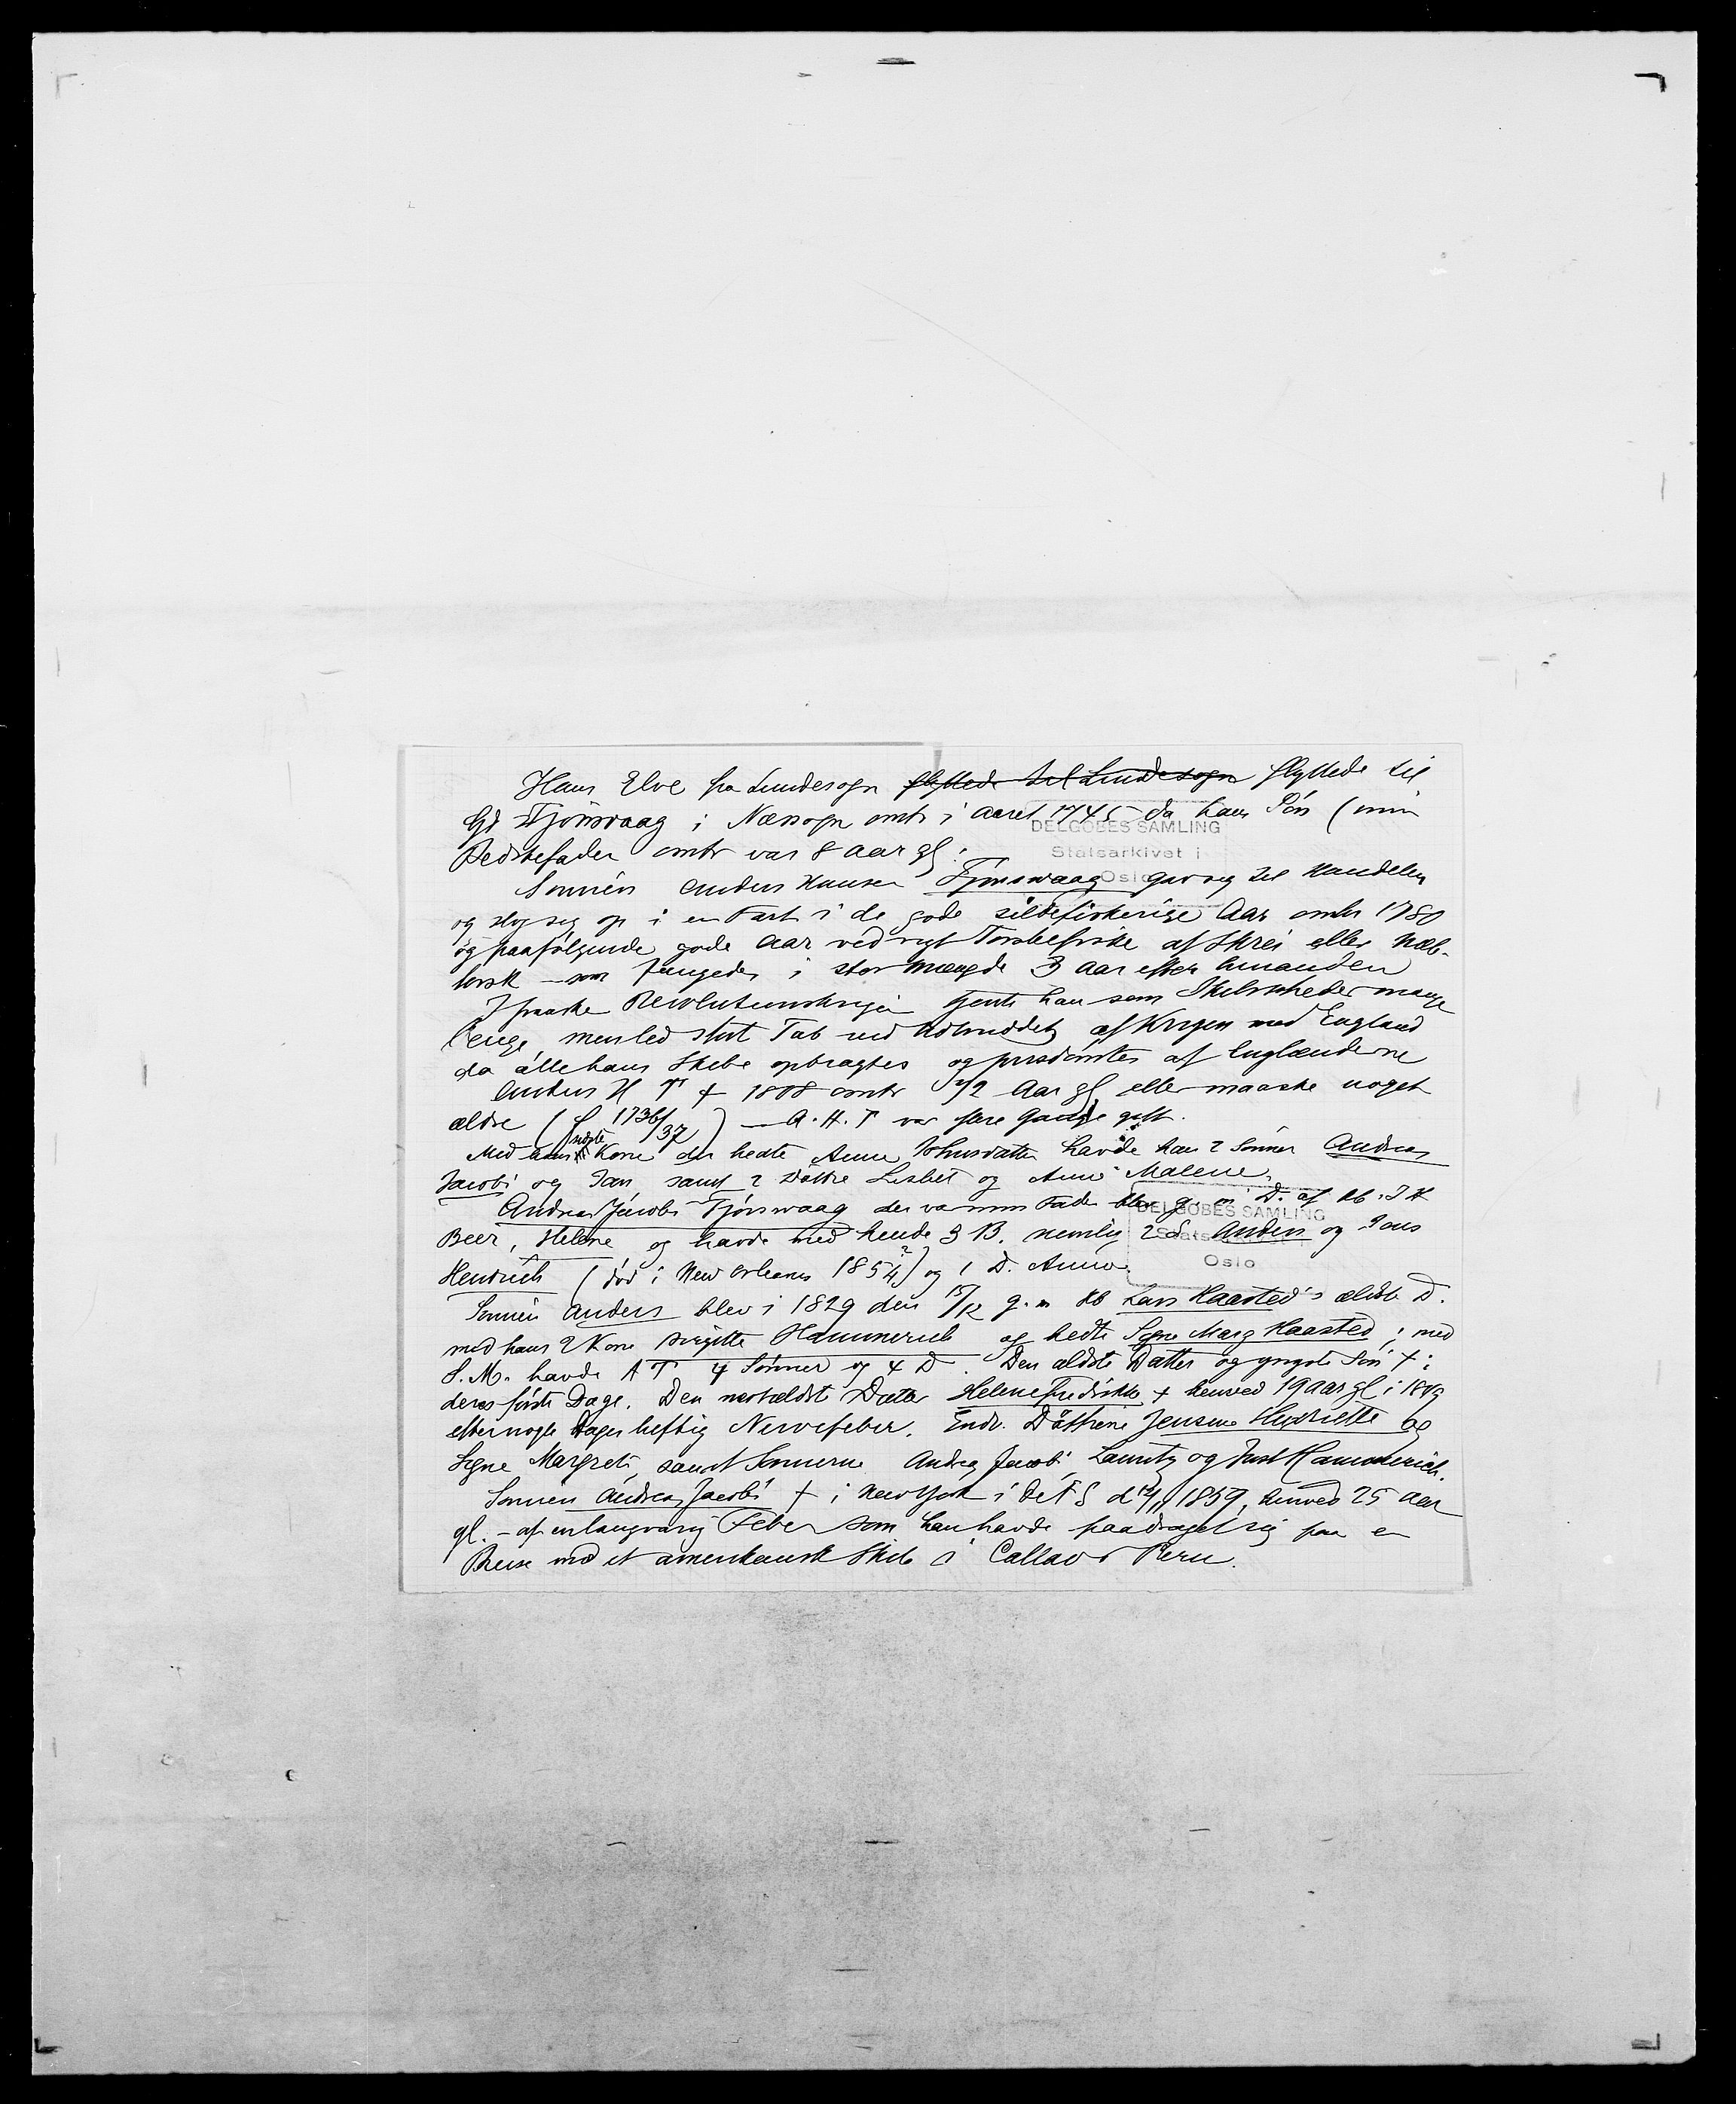 Hans Elve fra Lundesogn flyttede til Lundesogn flyttede til
Gd Tjörsvaag i Nessogn omtr i aaret 1745 da hans Sön (min
DELGOBES SAMLING
Bedstefader omtr var 8 aar gl.
Statsarkivet i
Oslo
Sönnen Anders Hansen Tjörswaag gav sig til Handelen
og slog sig op i en Fart i de gode sildefiskerige Aar omtr 1780
og paafölgende gode Aar ved rigt Torskefiske af Skrei eller Næb-
torsk – som fangedes i stor Mængde 3 Aar efter hinanden
I franske Revolutionskrigen tjente han som Skibsrheder mange
Penge, men led stort Tab ved Udbruddet af Krigen med England
da alle hans Skibe opbragtes og prisdömtes af Englænderne
Anders H T + 1808 omtr 72 Aar gl, eller maaske noget
ældre (f 1736/37) – A.H.T var flere Gange gift.
Med hans sidste Kone der hedte Anne Johnsdatter havde han 2 Sönner Andreas
Jacob og Jan samt 2 Döttre Lisbet og Anne Malene.
Andreas Jacob Tjörswaag der var min Fader blev g. m. D. af Kb. J H
DELGOBES SAMLING
Beer, Helene og havde med hende 3 B. nemlig 2 S. Anders og Jens
Statsarkivet i
Hendrich (död i New Orleans 1854?) og 1 D. Anne.
Oslo
Sönnen Anders blev i 1829 den 15/12 g. m Kb Lars Haasted's ældste D.
med hans 2 Kone Birgitte Hammerich og hedte Signe Marg Haasted; med
S.M. havde AT 4 Sönner og 4 D. Den ældste Datter og yngste Sön + i
deres förste Dage. Den næstældste Datter Helene Fredrikke + henved 19 aar gl i 1849
efter nogle Dages heftig Nervefeber. Endv. Döttrene Jensine Henriette og
Signe Margrete, samt Sönnerne Andreas Jacob, Lauritz og Just Hammerich.
Sönnen Andreas Jacob + i New York i 1859, henved 25 Aar
gl. – af en langvarig Feber som han havde paadraget sig paa en
Reise med et amerikansk Skib i Callao i Peru.